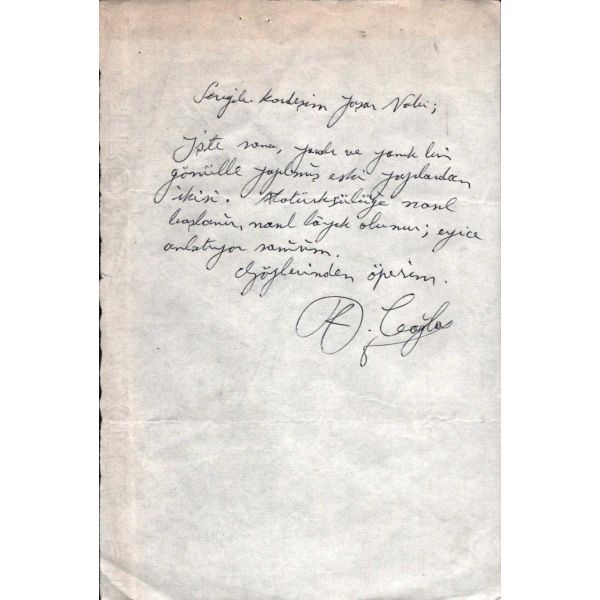 Sevgili kardeşim Yaşar Nabi;
İşte sana, yanık ve yanık bir
gönülle yapılmış eski yazılardan
ikisi. Atatürkçülüğe nasıl
başlanır, nasıl lâyık olunur; eyice
anlatıyor sanırım.
Gözlerinden öperim.